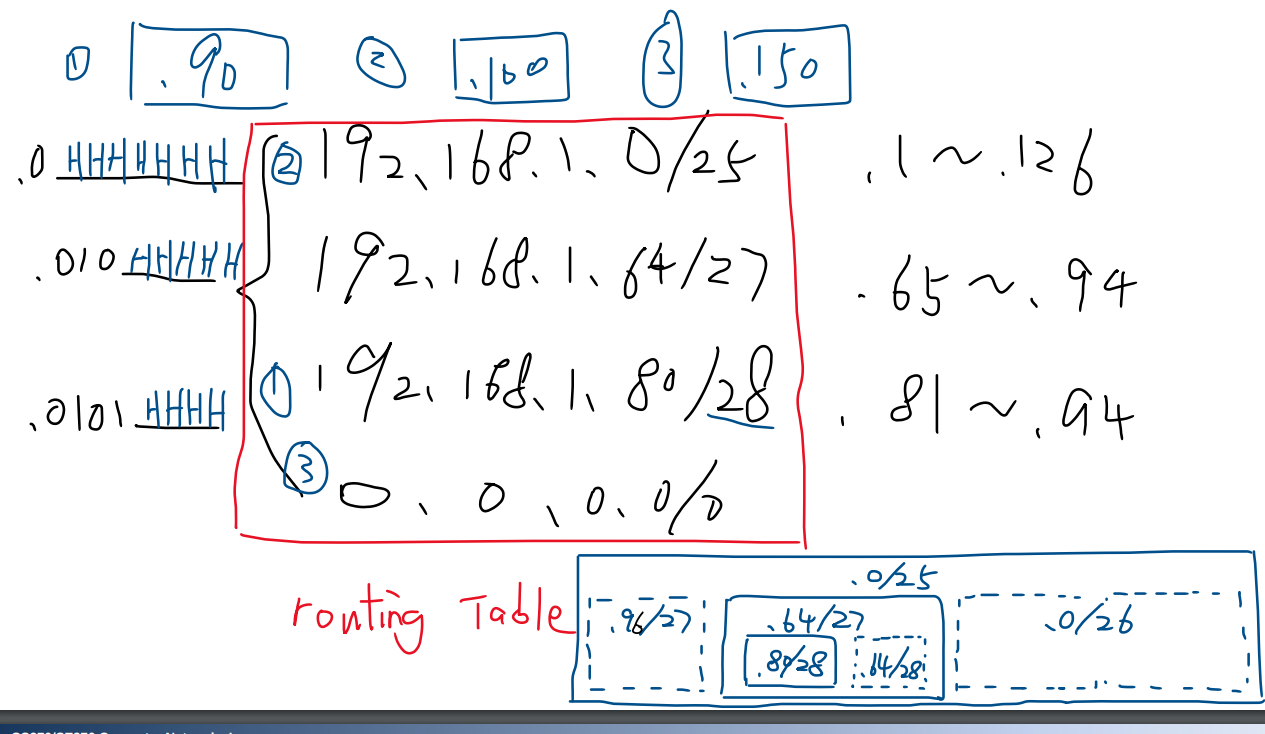 ① .90 ② .100 ③ .150
.0 HHHHHHH ② 192.168.1.0/25 .1 ~ .126
.010 HHHHH 192.168.1.64/27 .65 ~ .94
.0101 HHHH ① 192.168.1.80/28 .81 ~ .94
③ 0.0.0.0/0
routing Table
.0/25
.96/27 .64/27 .0/26
.80/28 .64/28